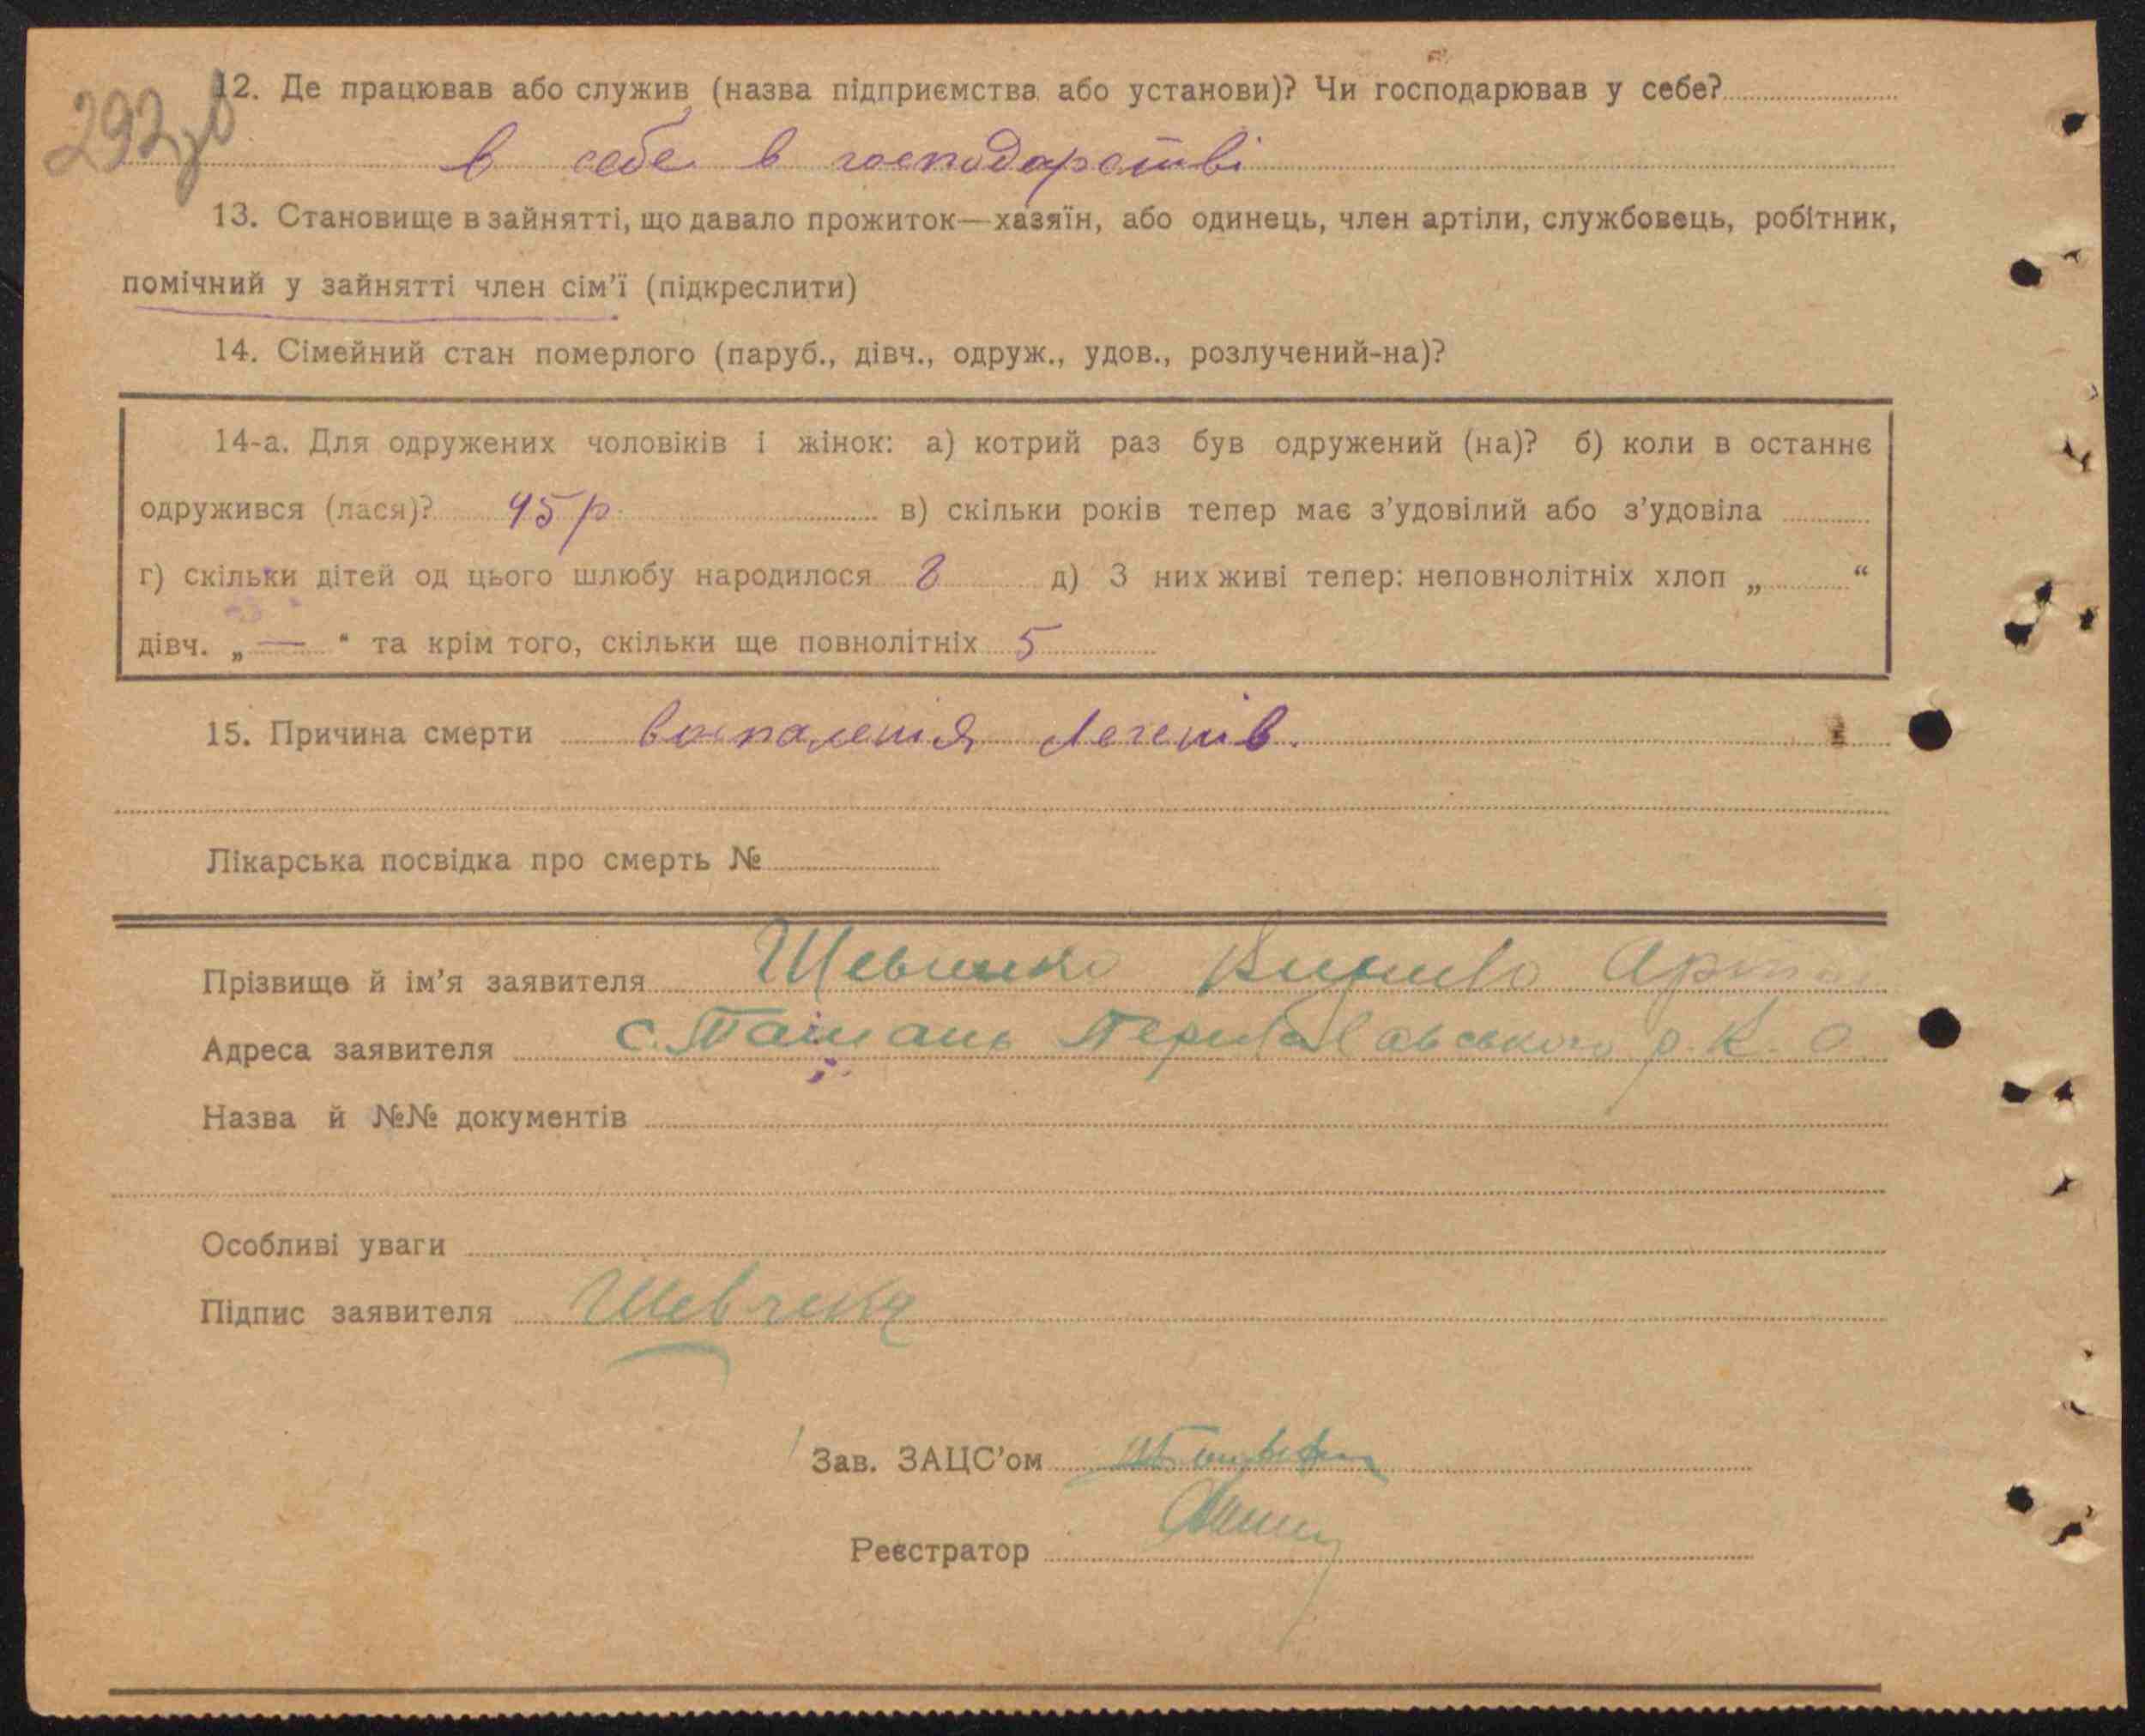 292зв
12. Де працював або служив (назва підприємства або установи)? Чи господарював у себе?
в себе в господарстві
13. Становище в зайнятті, що давало прожиток—хазяїн, або одинець, член артіли, службовець, робітник,
помічний у зайнятті член сім'ї (підкреслити)
14. Сімейний стан померлого (паруб., дівч., одруж., удов., розлучений-на)?
14-а. Для одружених чоловіків і жінок: а) котрий раз був одружений (на)? б) коли в останнє
одружився (лася)? 45 р. в) скільки років тепер має з'удовілий або з'удовіла
г) скільки дітей од цього шлюбу народилося 8 д) З них живі тепер: неповнолітніх хлоп „ “
дівч. „ — “ та крім того, скільки ще повнолітніх 5
15. Причина смерти воспаленія Легенів.
Лікарська посвідка про смерть №
Прізвище й ім'я заявителя
Адреса заявителя с. Ташань р. К. О
Назва й №№ документів
Особливі уваги
Підпис заявителя
Зав. ЗАЦС'ом
Реєстратор